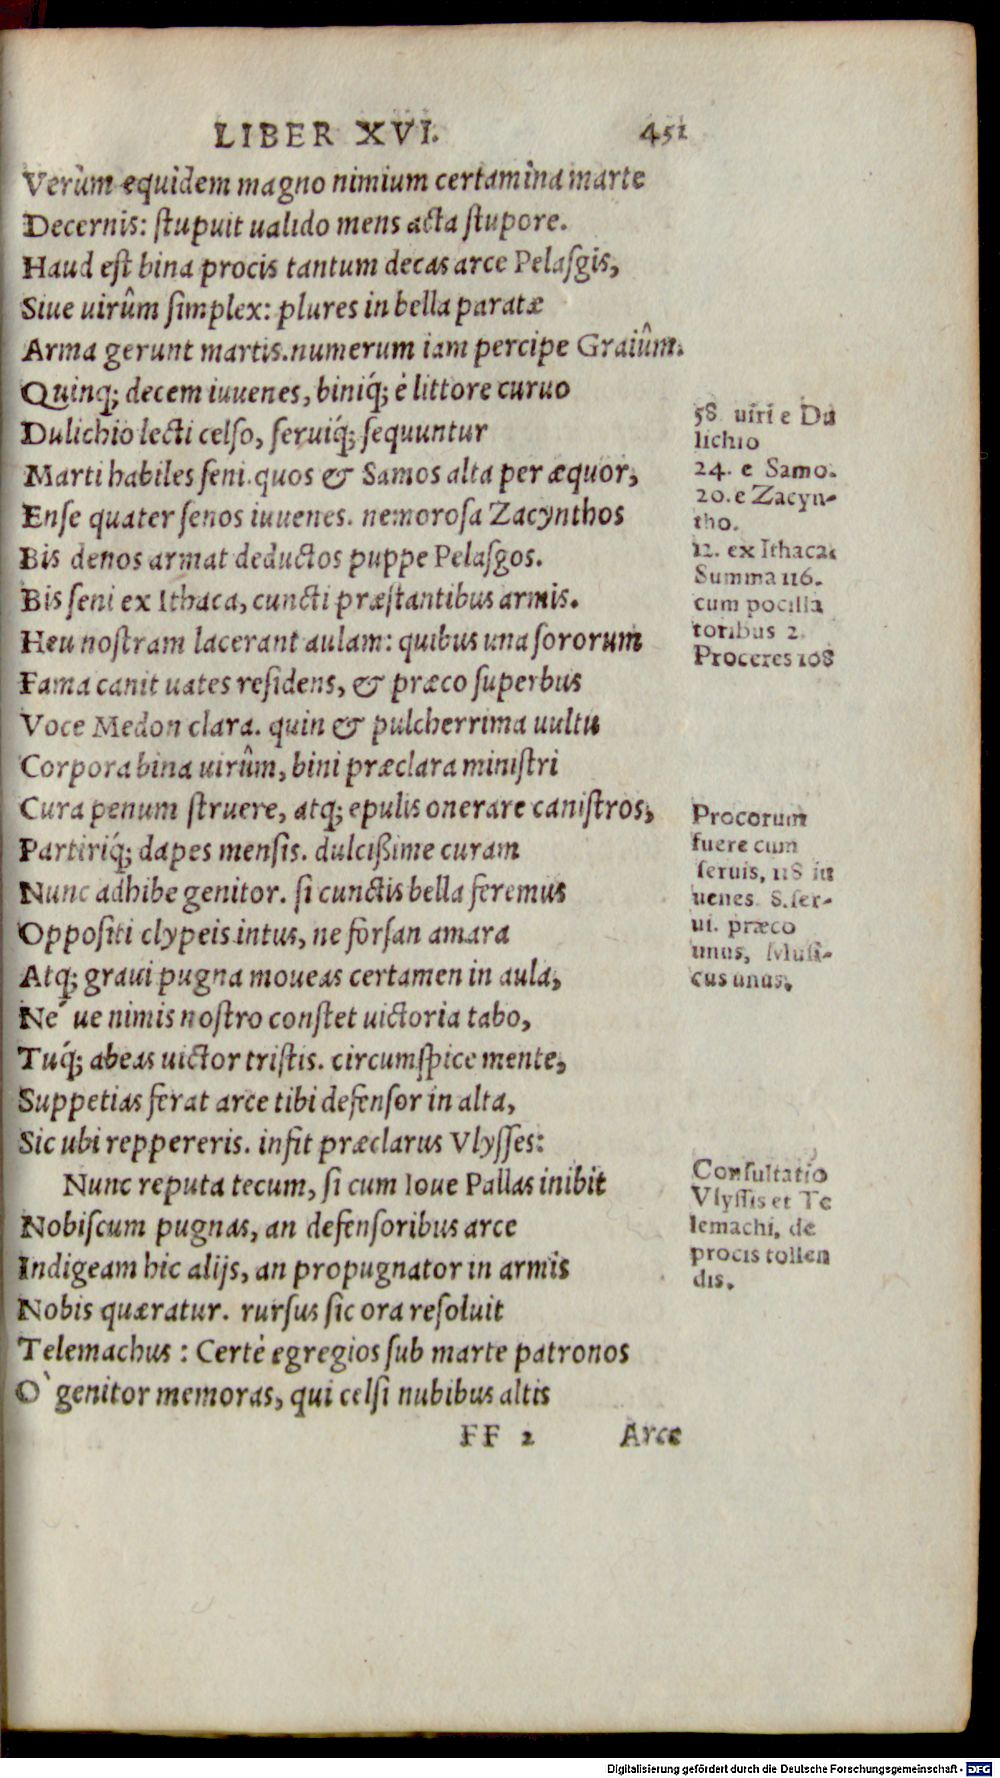 LIBER XVI. 451
Verùm equidem magno nimium certamina marte
Decernis: ſtupuit ualido mens acta ſtupore.
Haud eſt bina procis tantum decas arce Pelaſgis,
Siue uirûm ſimplex: plures in bella paratæ
Arma gerunt martis. numerum iam percipe Graiûm.
Quinq; decem iuuenes, biniq́; è littore curuo
Dulichio lecti celſo, ſeruiq́; ſequuntur
Marti habiles ſeni. quos & Samos alta per æquor,
Enſe quater ſenos iuuenes. nemoroſa Zacynthos
Bis denos armat deductos puppe Pelaſgos.
Bis ſeni ex Ithaca, cuncti præſtantibus armis.
Heu noſtram lacerant aulam: quibus una ſororum
Fama canit uates reſidens, & præco ſuperbus
Voce Medon clara. quin & pulcherrima uultu
Corpora bina uirûm, bini præclara miniſtri
Cura penum ſtruere, atq; epulis onerare caniſtros,
Partiriq́; dapes menſis. dulcißime curam
Nunc adhibe genitor. ſi cunctis bella feremus
Oppoſiti clypeis intus, ne forſan amara
Atq; graui pugna moueas certamen in aula,
Né ue nimis noſtro conſtet uictoria tabo,
Tuq́; abeas uictor triſtis. circumſpice mente,
Suppetias ferat arce tibi defenſor in alta,
Sic ubi reppereris. infit præclarus Vlyſſes:
Nunc reputa tecum, ſi cum Ioue Pallas inibit
Nobiſcum pugnas, an defenſoribus arce
Indigeam hic alijs, an propugnator in armis
Nobis quæratur. rurſus ſic ora reſoluit
Telemachus: Certè egregios ſub marte patronos
O` genitor memoras, qui celſi nubibus altis
FF 2 Arce
58. uiri e Du
lichio
24. e Samo.
20. e Zacyn-
tho.
12. ex Ithaca.
Summa 116.
cum pocilla
toribus 2.
Proceres 108
Procorum
fuere cum
ſeruis, 118 iu
uenes. 8. ſer-
ui. præco
unus, Muſi-
cus unus.
Conſultatio
Vlyſſis et Te
lemachi, de
procis tollen
dis.
Digitalisierung gefördert durch die Deutsche Forschungsgemeinschaft - DFG